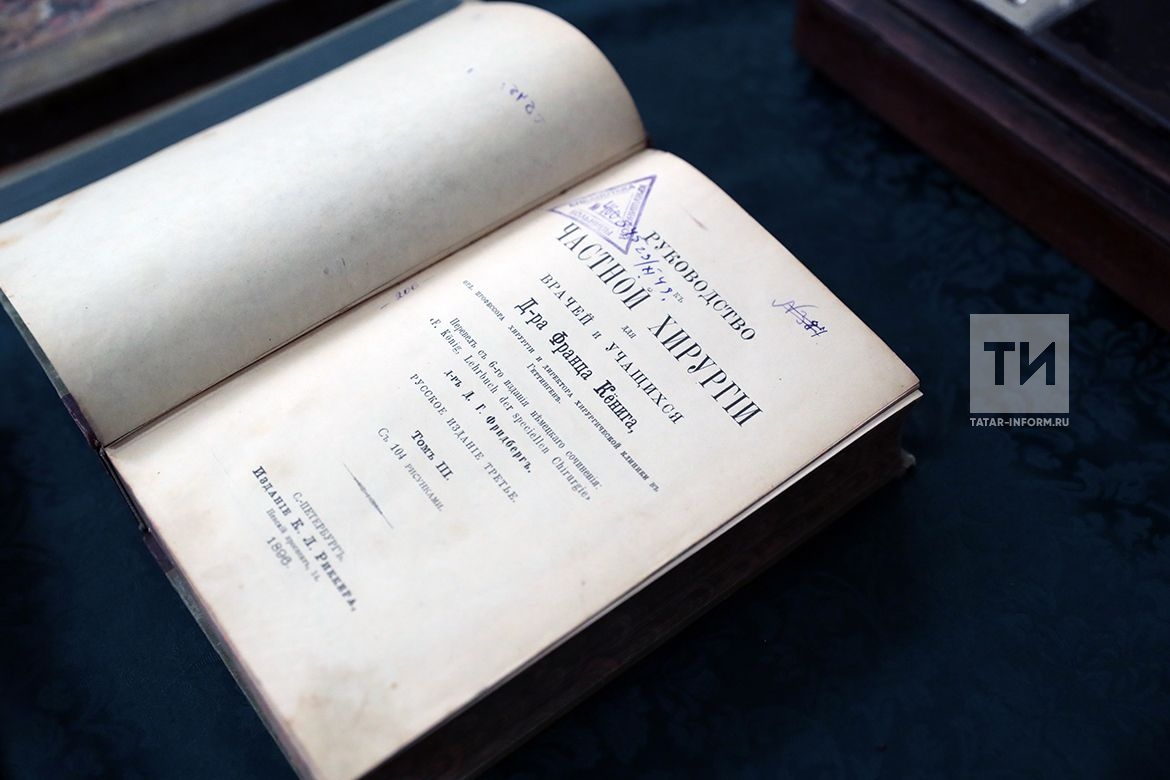 РУКОВОДСТВО
КЪ
ЧАСТНОЙ ХИРУРГІИ
ДЛЯ
ВРАЧЕЙ И УЧАЩИХСЯ
Д-ра Франца Кёнига,
ОРД. ПРОФЕССОРА ХИРУРГІИ И ДИРЕКТОРА ХИРУРГИЧЕСКОЙ КЛИНИКИ ВЪ
ГЕТТИНГЕНѢ
Перевелъ съ 6-го изданія нѣмецкаго сочиненія:
«F. König, Lehrbuch der speciellen Chirurgie»
Д-ръ Д. Г. Фридбергъ.
РУССКОЕ ИЗДАНІЕ ТРЕТЬЕ.
Томъ III.
Съ 104 рисунками.
С.-ПЕТЕРБУРГЪ.
Изданіе К. Л. Риккера,
Невскій проспектъ, 14.
1896.
200
ТИ
TATAR-INFORM.RU